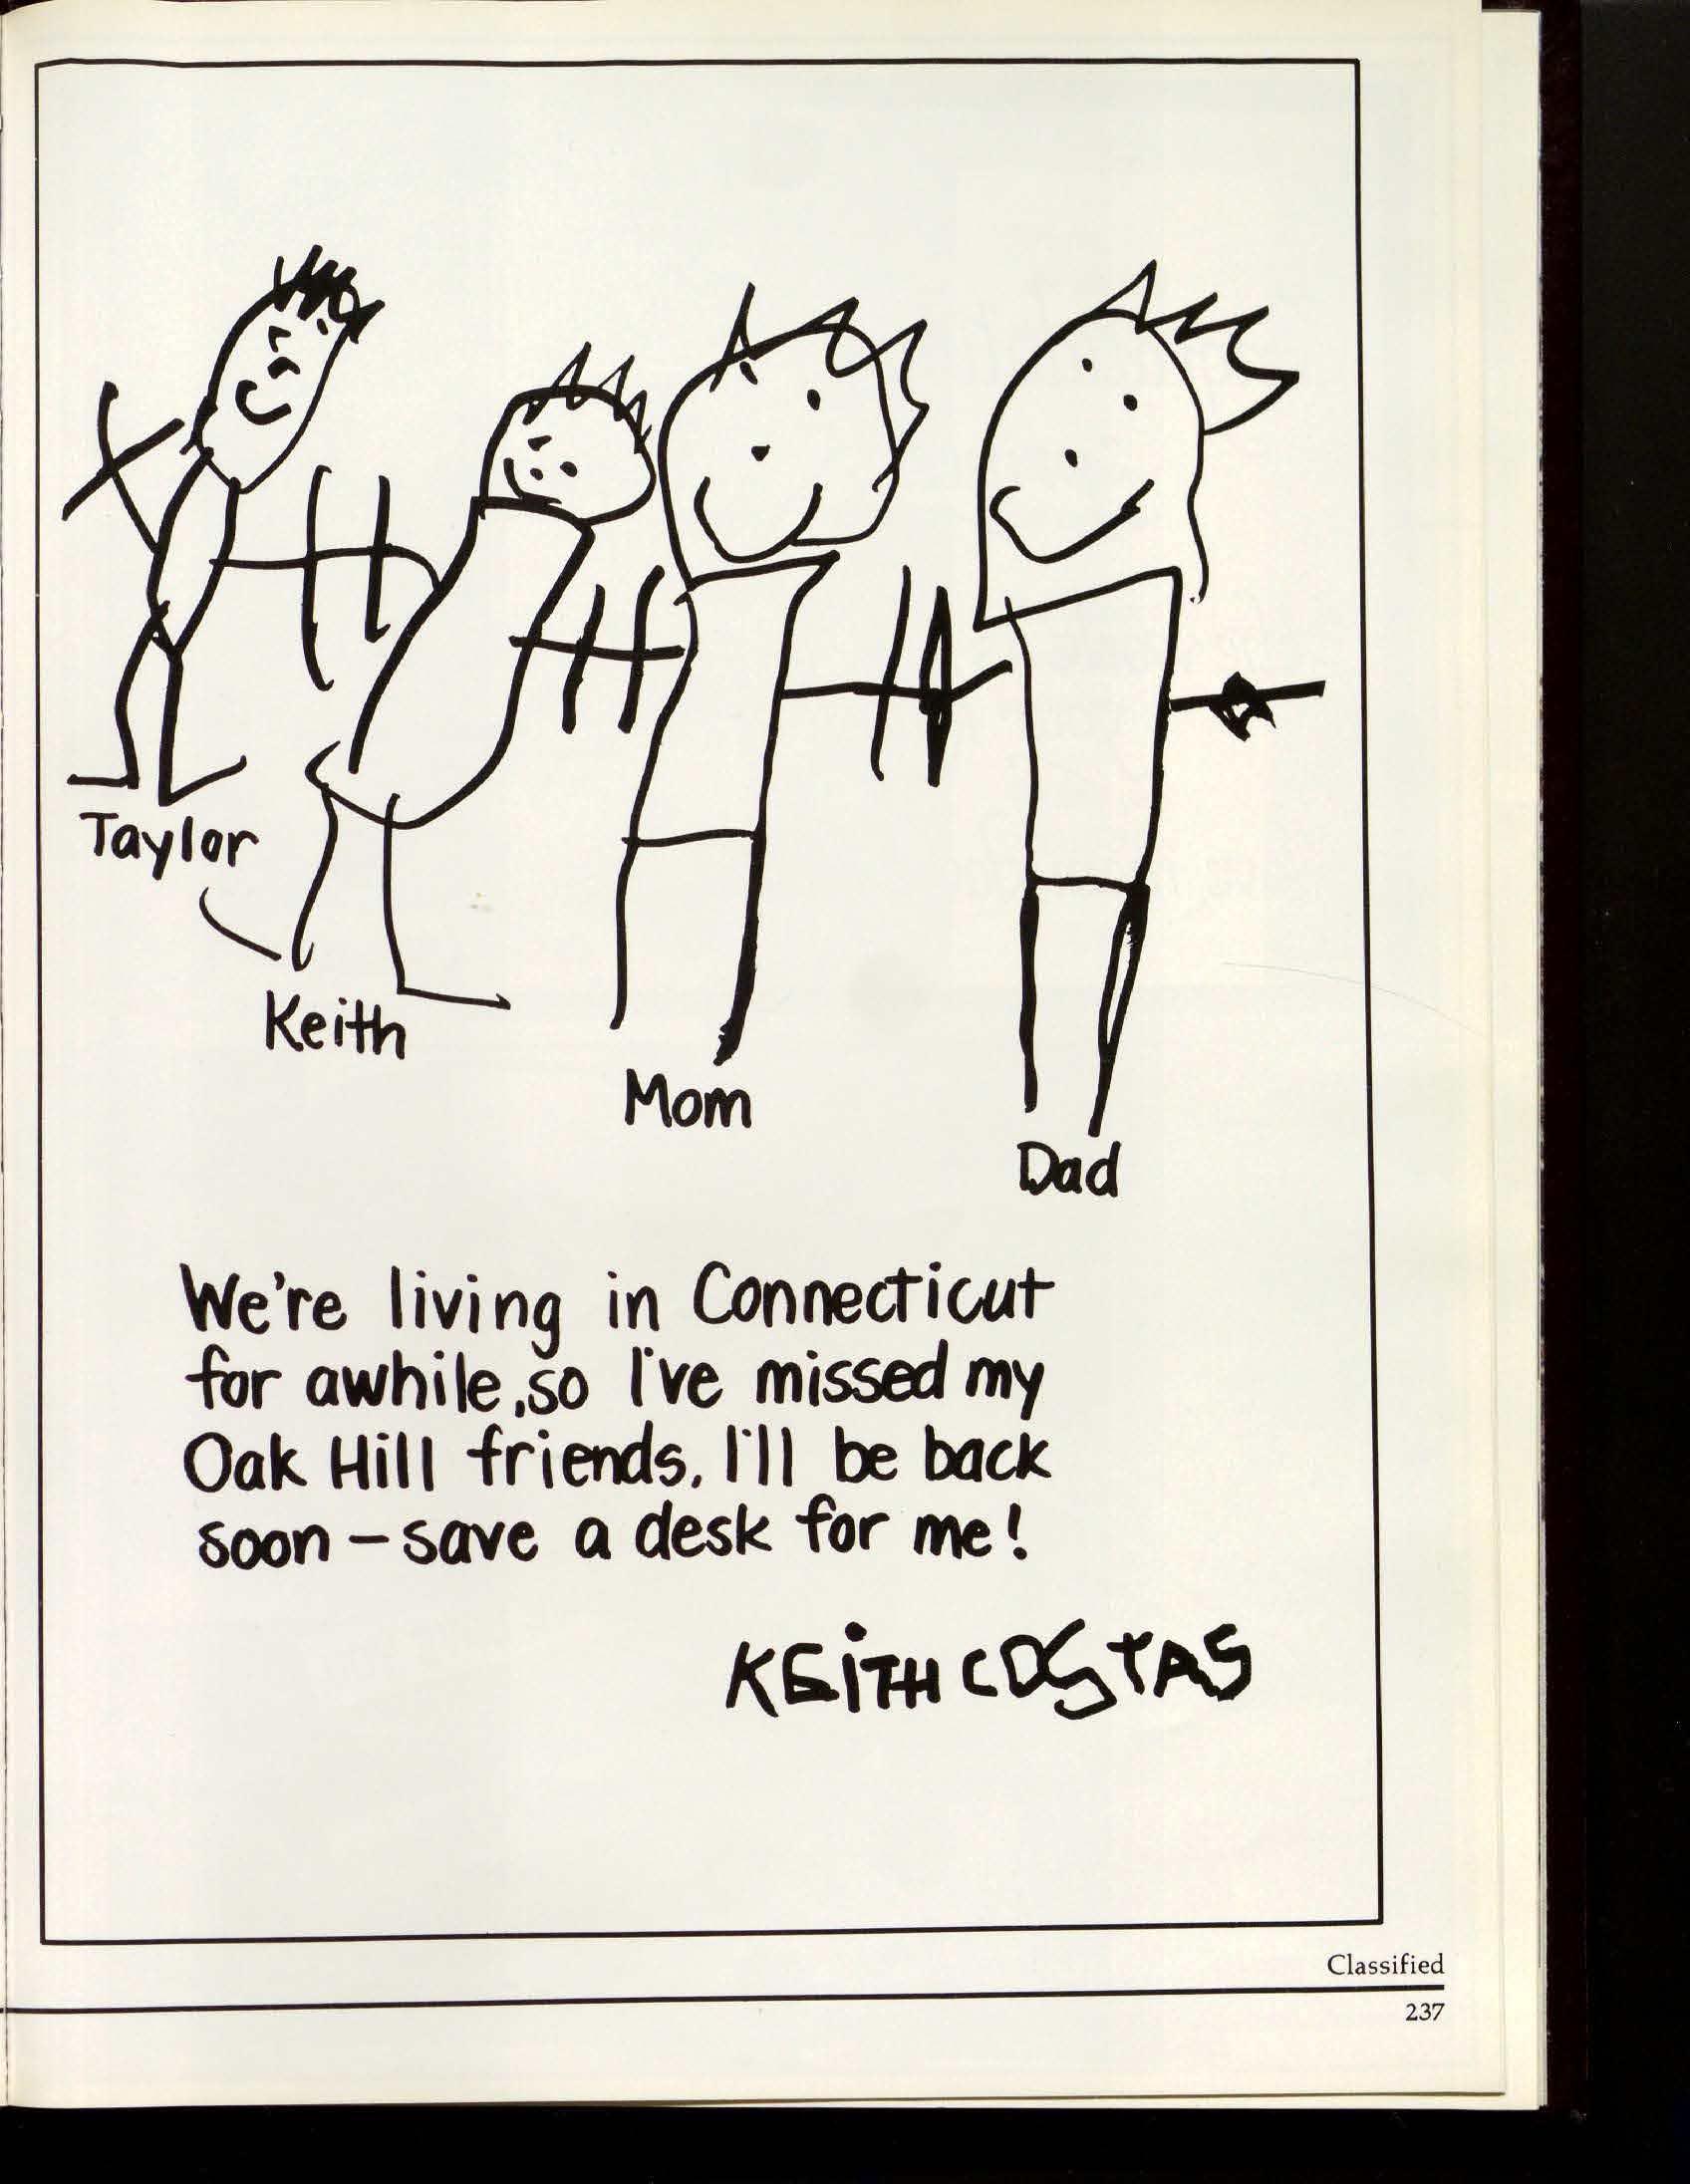 Taylor
Keith
Mom
Dad
We're living in Connecticut
for awhile, so I've missed my
Oak Hill friends. I'll be back
soon – save a desk for me!
KEiTH COSTAS
Classified
237